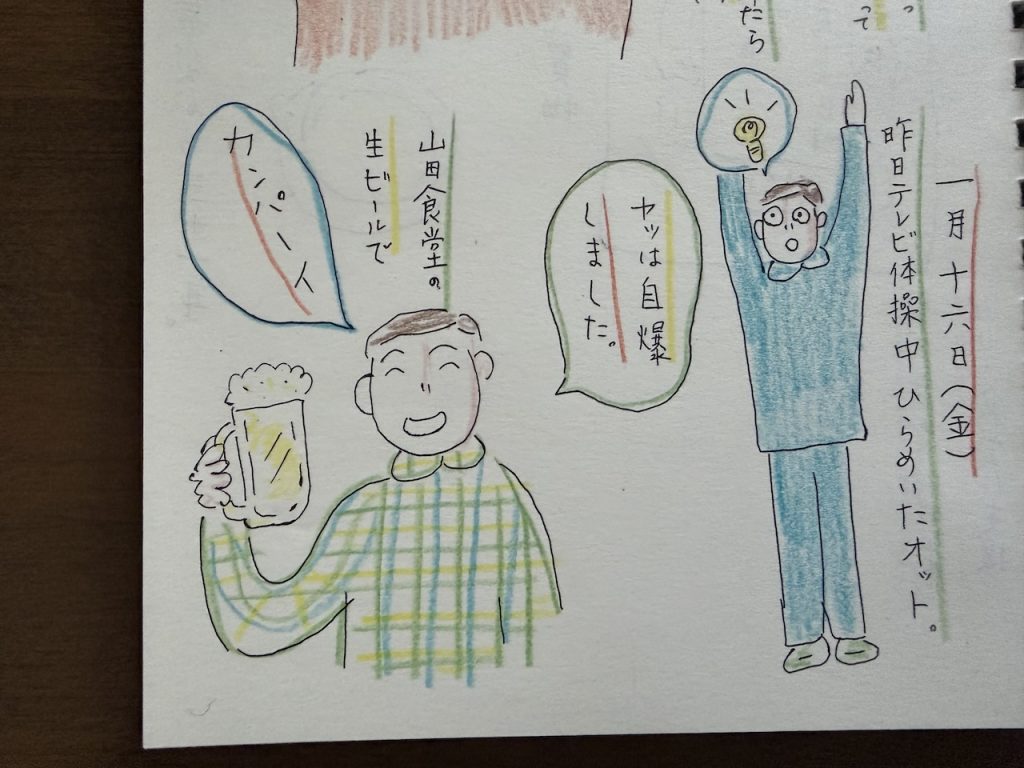 たら
って
一月十六日(金)
昨日テレビ体操中ひらめいたオット。
ヤツは自爆
しました。
山田食堂の
生ビールで
カンパーイ